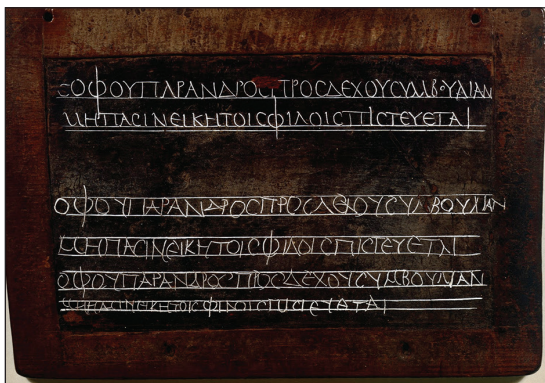 ϹΟΦΟΥΠΑΡΑΝΔΡΟϹΠΡΟϹΔΕΧΟΥϹΥΜΒΟΥΛΙΑΝ
ΜΗΠΑϹΙΝΕΙΚΗΤΟΙϹΦΙΛΟΙϹΠΙϹΤΕΥΕΤΑΙ
ΟΦΟΥΠΑΡΑΝΔΡΟϹΠΡΟϹΔΕΧΟΥϹΥΜΒΟΥΛΙΑΝ
ΜΗΠΑϹΙΝΕΙΚΗΤΟΙϹΦΙΛΟΙϹΠΙϹΤΕΥΕΤΑΙ
ΟΦΟΥΠΑΡΑΝΔΡΟϹΠΡΟϹΔΕΧΟΥϹΥΜΒΟΥΛΙΑΝ
ΜΗΠΑϹΙΝΕΙΚΗΤΟΙϹΦΙΛΟΙϹΠΙϹΤΕΥΑΤΑΙ